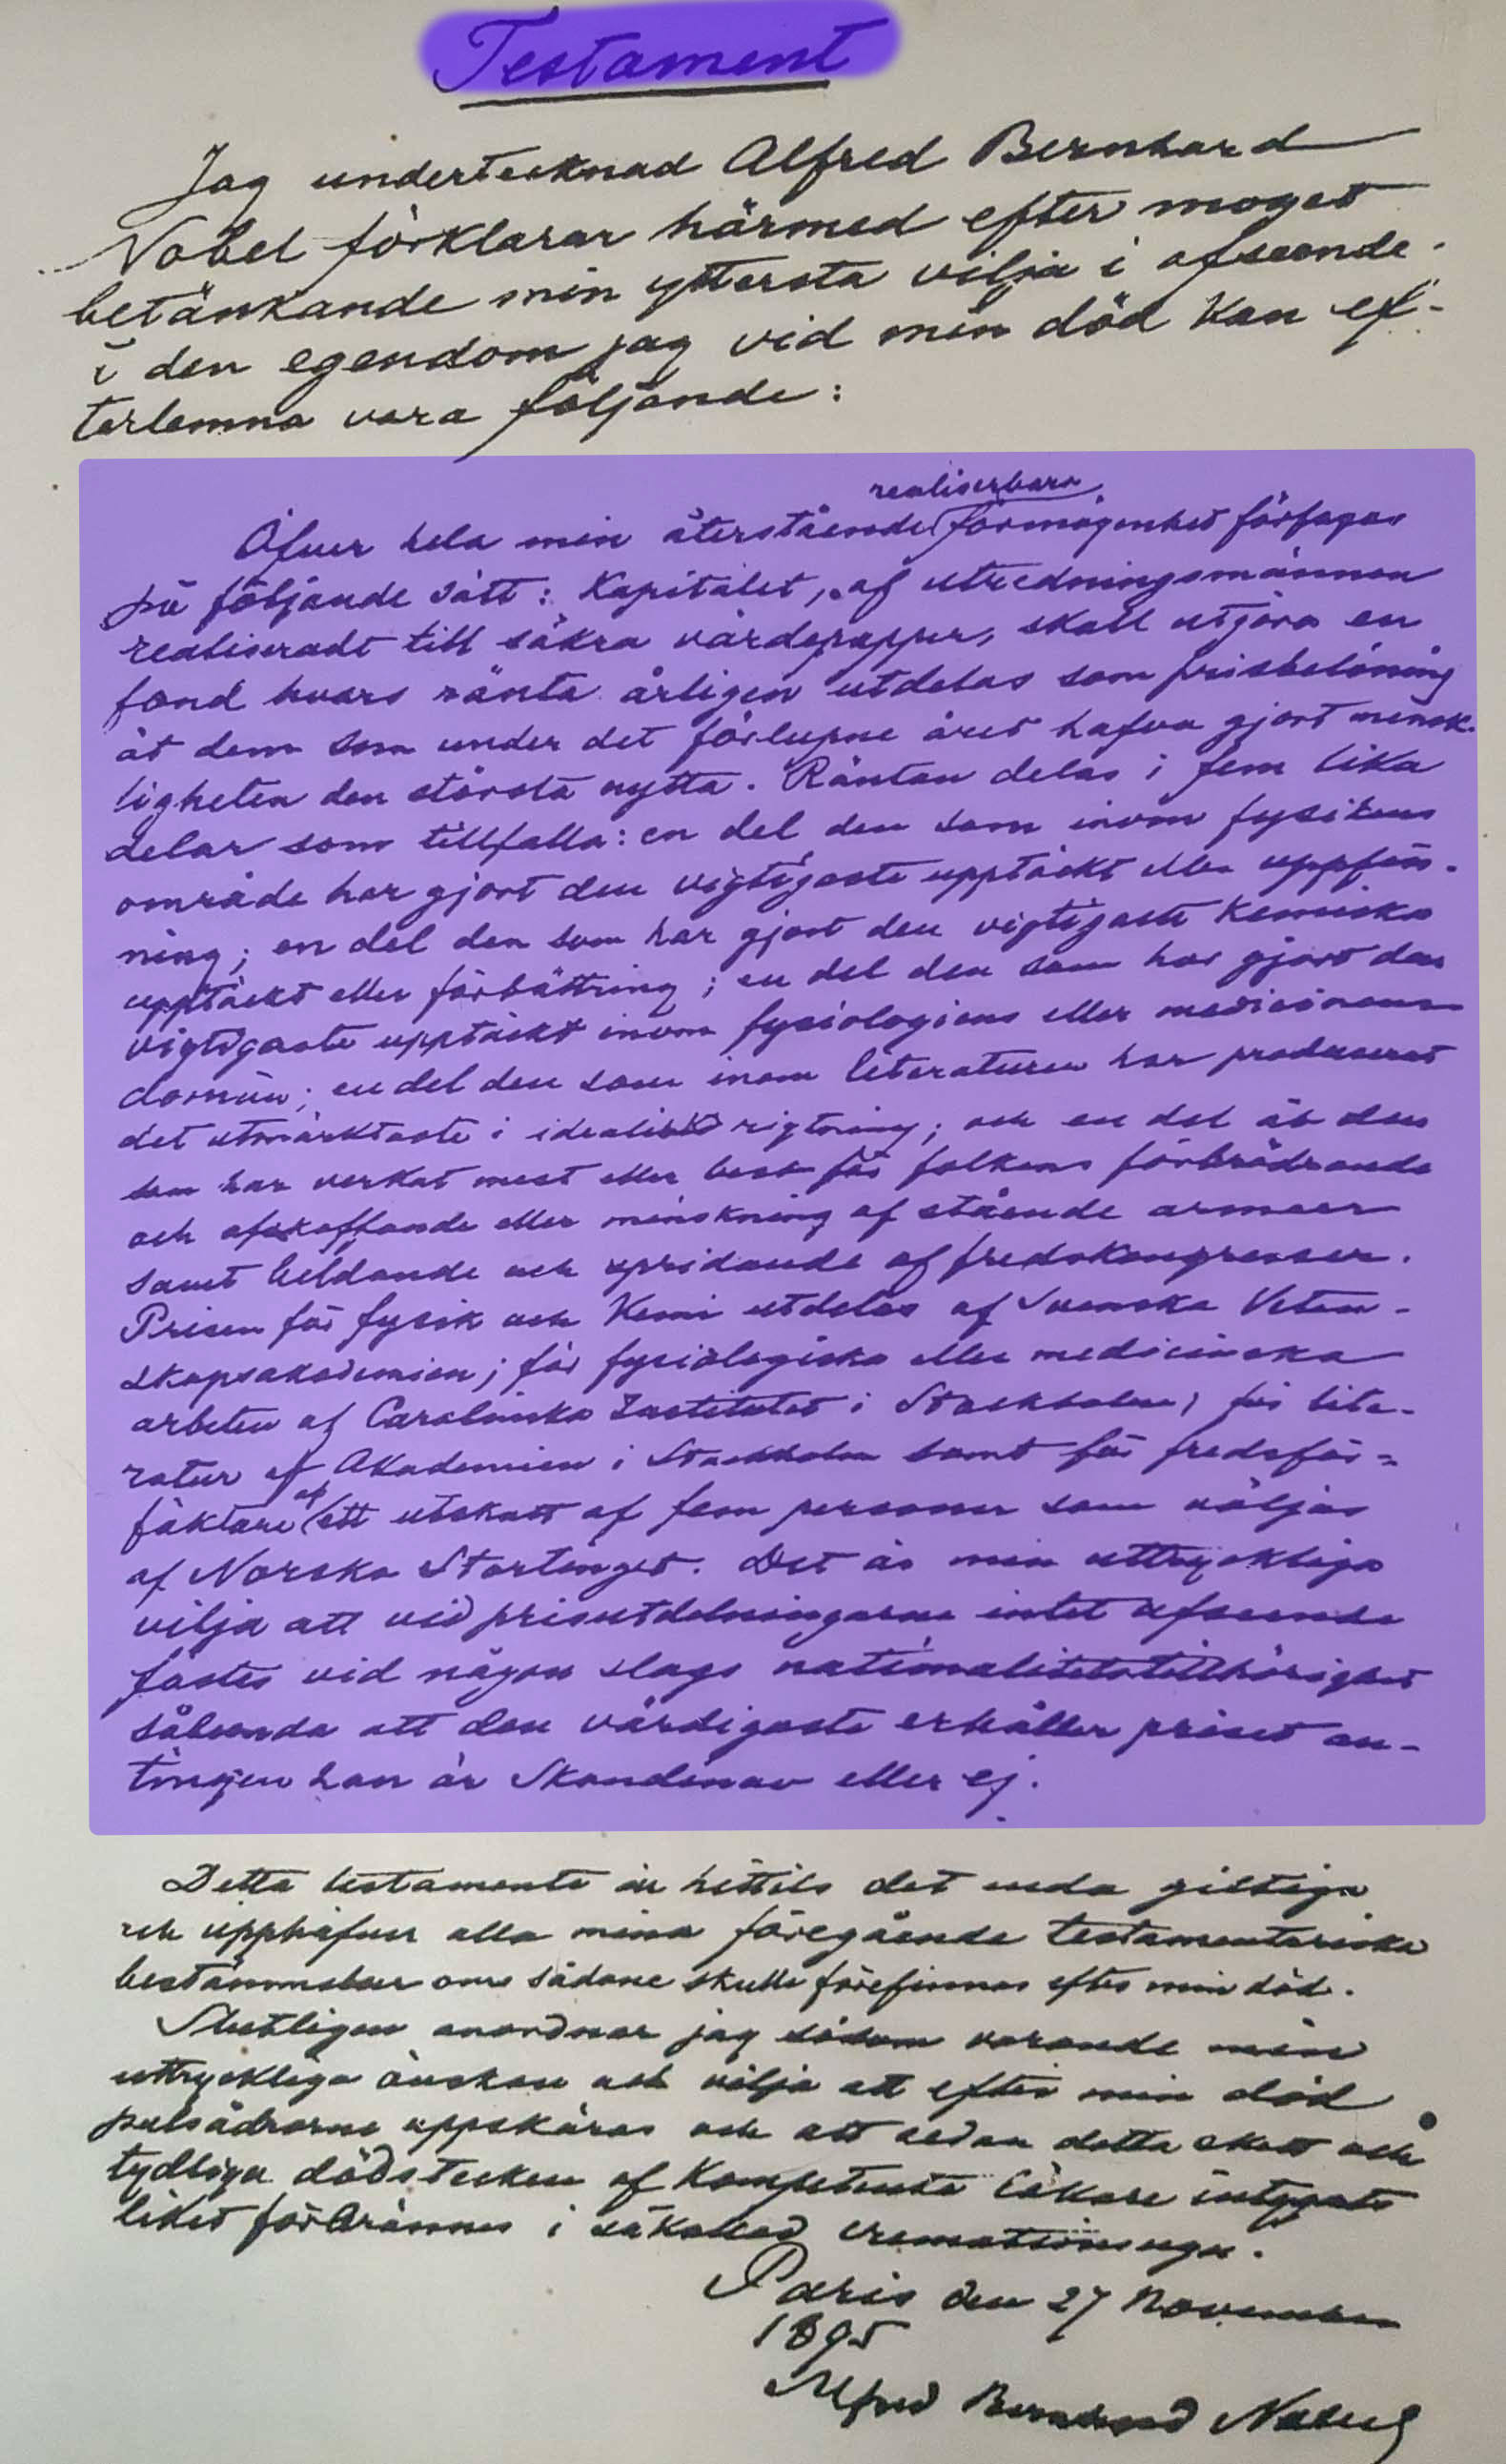 Testament
Jag undertecknad Alfred Bernhard
Nobel förklarar härmed efter moget
betänkande min yttersta vilja i afseende
å den egendom jag vid min död kan ef-
terlemna vara följande:
realiserbara
Öfver hela min återstående förmögenhet förfogas
på följande sätt: Kapitalet, af utredningsmännen
realiseradt till säkra värdepapper, skall utgöra en
fond hvars ränta årligen utdelas som prisbelöning
åt dem som under det förlupne året hafva gjort mensk-
ligheten den största nytta. Räntan delas i fem lika
delar som tillfalla: en del den som inom fysikens
område har gjort den vigtigaste upptäckt eller uppfin-
ning; en del den som har gjort den vigtigaste kemiska
upptäckt eller förbättring; en del den som har gjort den
vigtigaste upptäckt inom fysiologiens eller medicinens
domän; en del den som inom literaturen har producerat
det utmärktaste i idealisk rigtning; och en del åt den
som har verkat mest eller best för folkens förbrödrande
och afskaffande eller minskning af stående armeer
samt bildande och spridande af fredskongresser.
Prisen för fysik och kemi utdelas af Svenska Veten-
skapsakademien; för fysiologiska eller medicinska
arbeten af Carolinska Institutet i Stockholm; för lite-
ratur af Akademien i Stockholm samt för fredsför-
fäktare af ett utskott af fem personer som väljas
af Norska Stortinget. Det är min uttryckliga
vilja att vid prisutdelningarne intet afseende
fästes vid någon slags nationalitetstillhörighet
sålunda att den värdigaste erhåller priset an-
tingen han är Skandinav eller ej.
Detta testamente är hittills det enda giltiga
och upphäfver alla mina föregående testamentariska
bestämmelser om sådane skulle förefinnas efter min död.
Slutligen anordnar jag såsom varande min
uttryckliga önskan och vilja att efter min död
pulsådrorna uppskäras och att sedan detta skett och
tydliga dödstecken af kompetenta läkare intygats
liket förbrännes i såkallad cremationsugn.
Paris den 27 November
1895
Alfred Bernhard Nobel